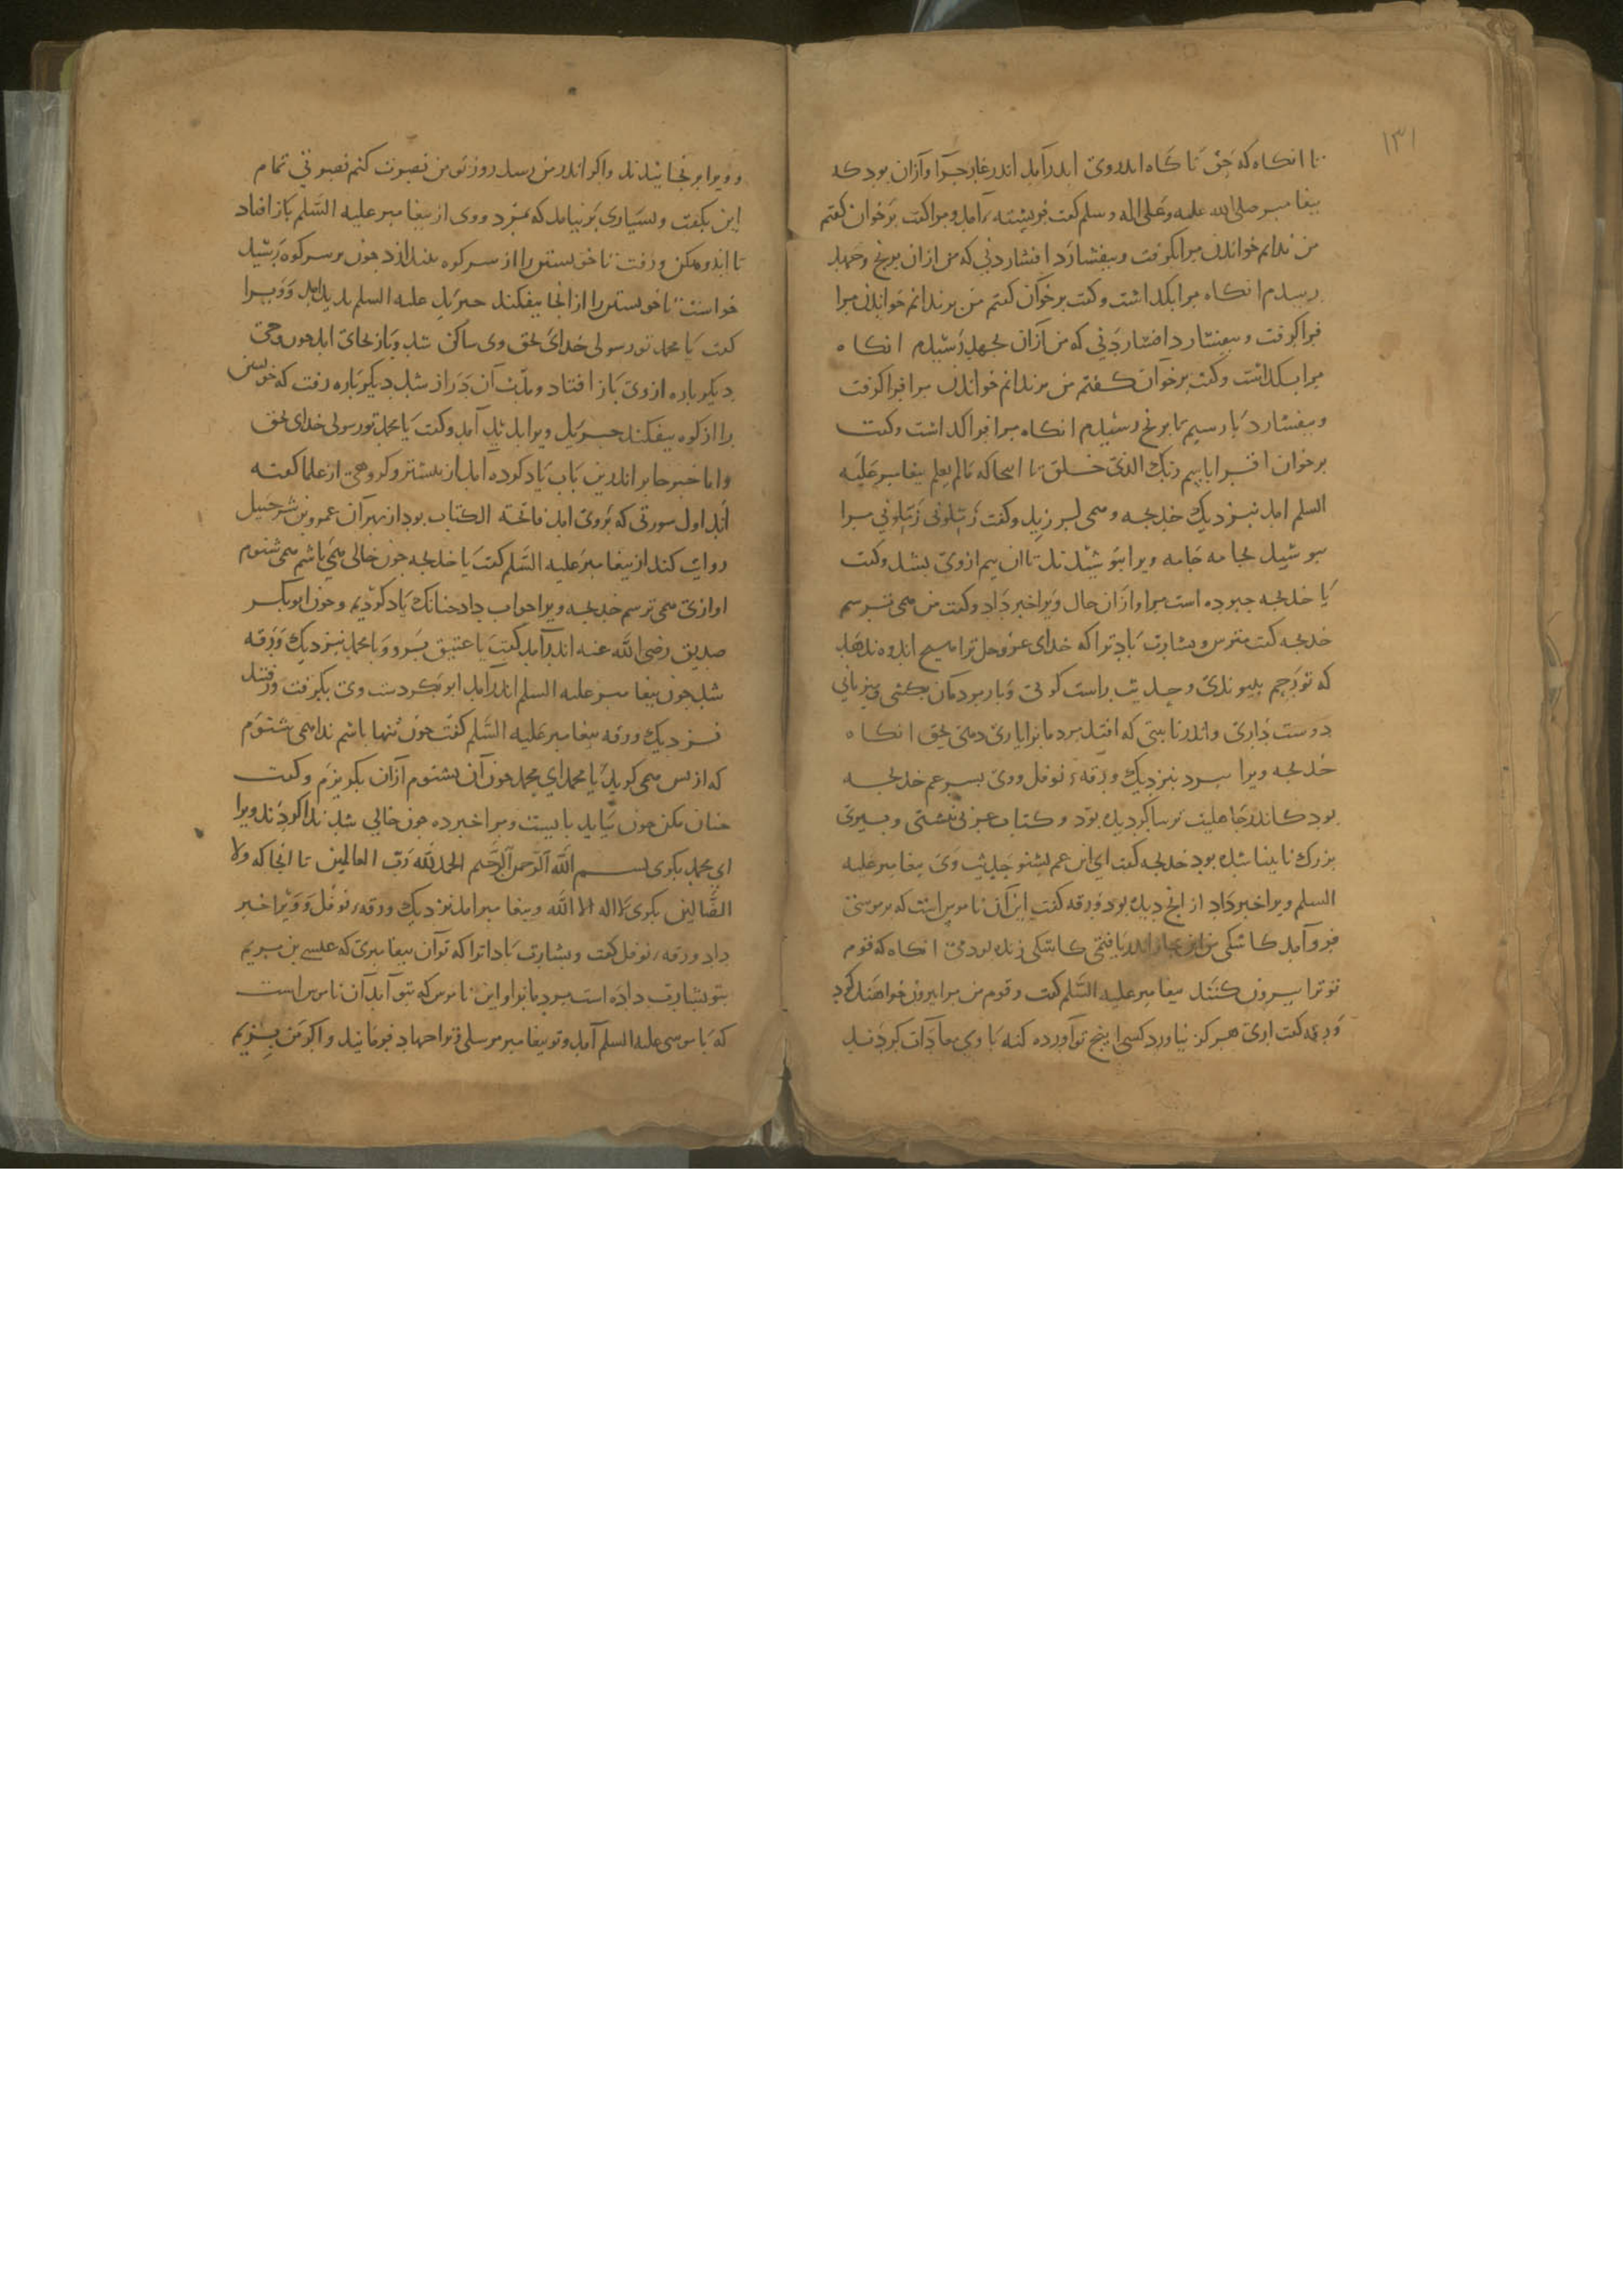 ١٣١
تا انکاه که حق ناکاه ابدروی اندرآمد اندر غار حرا وآزان بود که
بیغامبر صلی الله علیه وعلی اله وسلم کفت فریشته آمد ومرا کفت برخوان کفتم
من ندانم خواندن مرا بکرفت وبیفشارد افشاردنی که من ازان برنج وجهد
رسیدم انکاه مرا بکداشت وکفت برخوان کفتم من برندانم خواندن مرا
فراکرفت وبیفشارد افشاردنی که من ازان بجهد رسیدم انکاه
مرا بکداشت وکفت برخوان کفتم من برندانم خواندن مرا فراکرفت
وبیفشارد بار سیم تا برنج رسیدم انکاه مرا فراکداشت وکفت
برخوان اقرا باسم ربک الذی خلق تا انجا که مالم یعلم بیغامبر علیه
السلم امد نبزدیک خدیجه ومی لرزید وکفت زملونی زملونی مرا
ببوشید بجامه جامه ویرا ببوشیدند تا ان بیم ازوی بشد وکفت
یا خدیجه جبوده است مرا وازان حال ویرا خبر داد وکفت من می ترسم
خدیجه کفت مترس وبشارت باد ترا که خدای عزوجل ترا هیچ اندوه ندهد
که تو رحم بیوندی وحدیث راست کوئی وبار مردمان بکشی ومیزبانی
دوست داری واندر نایبتی که افتد مردمانرا یاری دهی بحق انکاه
خدیجه ویرا ببرد نبزدیک ورقه نوفل ووی بسر عم خدیجه
بود کاندر جاهلیت ترسا کردیده بود وکتاب عربی نبشتی وبیری
بزرک نابینا شده بود خدیجه کفت ای ابن عم بشنو حدیث وی بیغامبر علیه
السلم ویرا خبر داد از انج دیده بود ورقه کفت این آن ناموس است که بر موسی
فروآمد کاشکی من اندریافتمی کاشکی زنده بودمی انکاه که قوم
تو ترا بیرون کنند بیغامبر علیه السلم کفت وقوم من مرا بیرون خواهند کرد
ورقه کفت اری هرکز نیاورد کسی اینج تو آورده کنه با وی معادات کردند
وویرا برنجانیدند واکر اندر من رسد روز تو من نصرت کنم نصرتی تمام
این بکفت وبسیاری برنیامد که بمرد ووی از بیغامبر علیه السلم باز افتاد
تا اندوهکن ورفت تا خویستن را از سر کوه بیندازد جون بر سر کوه رسید
خواست تا خویستن را از انجا بیفکند جبریل علیه السلم بدید امد وویرا
کفت یا محمد تو رسولی خدای بحق وی ساکن شد وباز بجای امد جون وحی
دیکر باره ازوی باز افتاد ومدت آن دراز شد دیکر باره رفت که خویستن
را از کوه بیفکند جبریل ویرا بدید آمد وکفت یا محمد تو رسولی خدای بحق
واما خبر جابر اندرین باب یاد کرده آمد از بیشتر وکروهی از علما کفته
اند اول سورتی که بروی امد فاتحة الکتاب بود از بهر آن عمرو بن شرحبیل
روایت کند از بیغامبر علیه السلم کفت یا خدیجه جون خالی می باشم می شنوم
اوازی می ترسم خدیجه ویرا جواب داد جنانک یاد کردیم وجون ابوبکر
صدیق رضی الله عنه اندرآمد کفت یا عتیق برو وبا محمد نبزدیک ورقه
شد جون بیغامبر علیه السلم اندرآمد ابوبکر دست وی بکرفت ورفتند
نزدیک ورقه بیغامبر علیه السلم کفت جون تنها باشم ندا می شنوم
که از بس می کوید یا محمد ای محمد جون آن بشنوم آزان بکریزم وکفت
جنان مکن جون بیاید بایست ومرا خبر ده جون خالی شد ندا کردند ویرا
ای محمد بکوی بسم الله الرحمن الرحیم الحمد لله رب العالمین تا انجا که ولا
الضالین بکوی لا اله الا الله وبیغامبر امد نزدیک ورقه نوفل وویرا خبر
داد ورقه نوفل کفت وبشارت باد اترا که تو آن بیغامبری که عیسی بن مریم
بتو بشارت داده است مردمانرا واین ناموس که بتو آمد آن ناموس است
که با موسی علیه السلم آمد وتو بیغامبر مرسلی وترا جهاد فرمانید واکر من بزیم